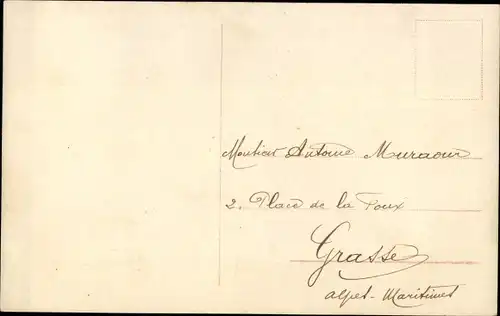 Monsieur Antoine Muraour
2. Place de la Foux
Grasse
Alpes-Maritimes